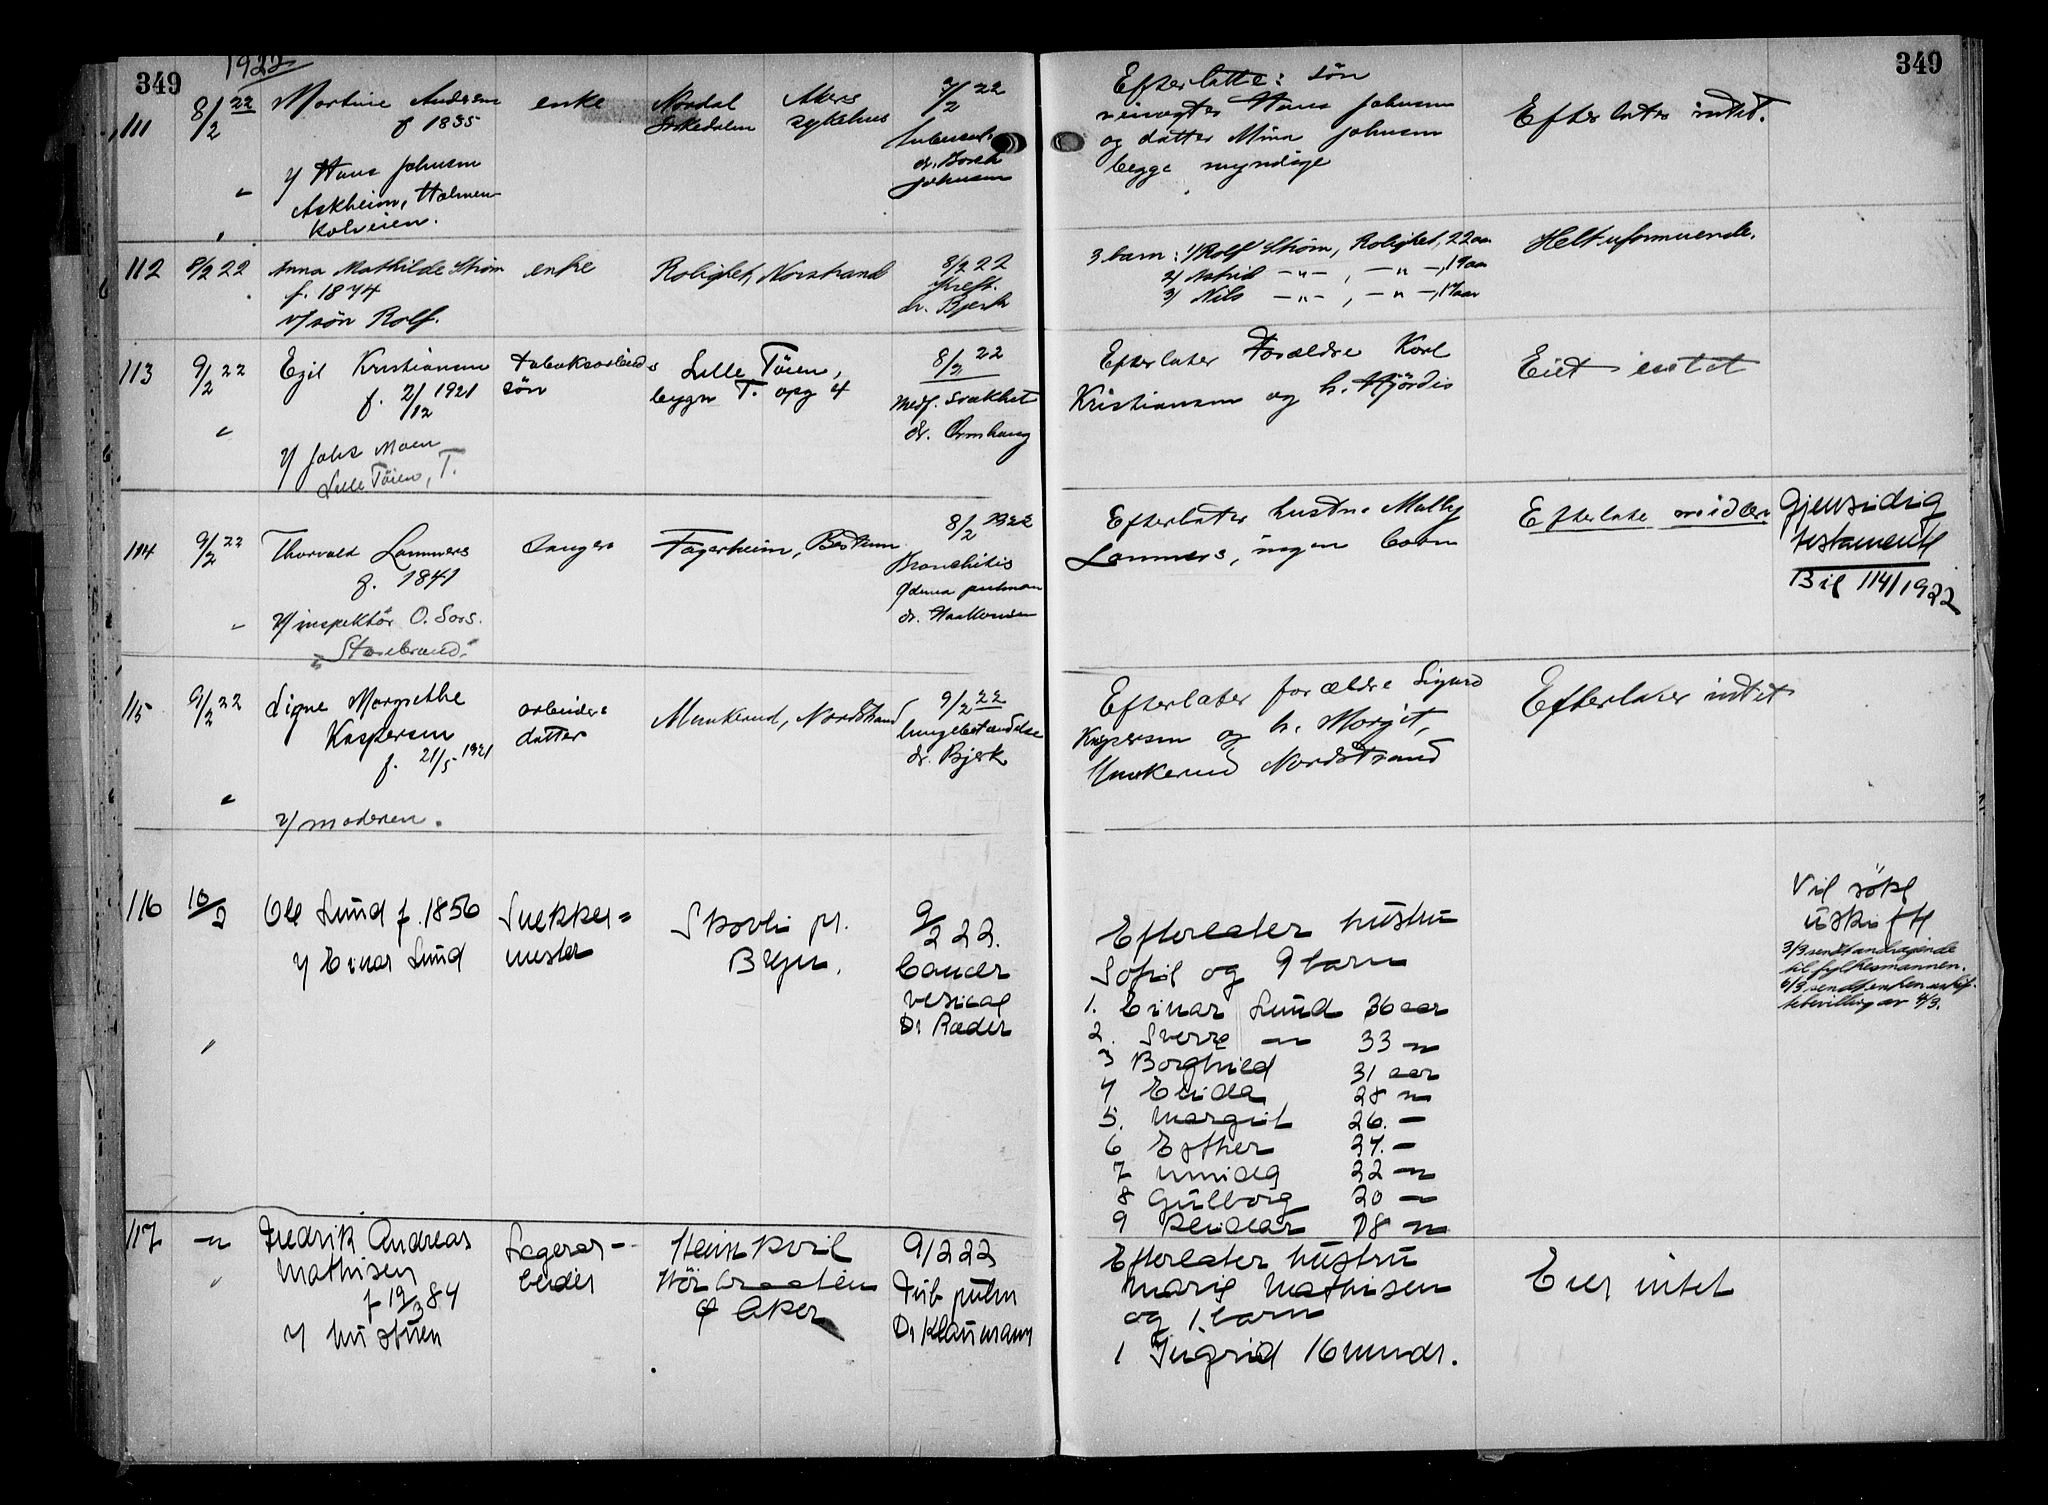 349
1922
349
111
8/2 22
Martine Andersen
f 1835
v/ Hans Johnsen
Askheim, Holmen
kolveien.
enke
Nordal
Sørkedalen
Akers
sykehus
9/2 22
dr. Borch
Johnsen
Efterlatte: søn
Hans Johnsen
og datter Mina Johnsen
begge myndige
Efterlater intet.
112
8/2 22
Anna Mathilde Strøm
f. 1874
v/ søn Rolf.
enke
Rolighet, Norstrand
8/2 22
Kreft.
dr. Bjerk
3 barn: 1/ Rolf Strøm, Rolighet, 22 aar
2/ Astrid -"- , -"-, 19 aar
3/ Nils -"- , -"-, 17 aar
Helt uformuende.
113
9/2 22
Egil Kristiansen
f. 2/12 1921
v/ Johs Moen
Lille Töien, T.
tobaksarbeiders
søn
Lille Töien,
bygn T. opg 4
8/2 22
Medf. svakhet
dr. Ormhaug
Efterlater Forældre Karl
Kristiansen og h. Hjördis
Eiet intet
114
9/2 22
Thorvald Lammers
f. 1841
v/ inspektör O. Sørs.
"Storebrand"
Sanger
Fagerheim, Bestum
8/2 1922
Bronchitis
Ødema pulmon
dr. Haakonsen
Efterlater hustru Mally
Lammers, ingen barn
Efterlate midler
Gjensidig
testamente
Bil 114/1922
115
9/2 22
Signe Margrethe
Kaspersen
f. 21/5 1921
v/ moderen.
arbeider=
datter
Munkerud, Nordstrand
9/2 22
lungebetændelse
dr. Bjerk
Efterlater forældre Sigurd
Kaspersen og h. Margit,
Munkerud Nordstrand
Efterlater intet
116
10/2
Ole Lund f. 1856
v/ Einar Lund
Snekker=
mester
Skovli pr.
Bryn.
9/2 22.
Cancer
vesicae
Dr Ræder
Efterlater hustru
Sofie og 9 barn
1. Einar Lund 36 aar
2. Sverre -"- 33 -"-
3 Borghild 31 aar
4 Elida 28 -"-
5. Margit 26. -
6 Esther 24. -
7 22 -"-
8 Gulborg 20 -"-
9 Reidar 18 -"-
Vil søke
uskifte
3/3 sendt andragende
til fylkesmannen.
6/3 sendt enken uskif-
tebevilling av 4/3.
117
-"-
Fredrik Andreas
Mathisen
f 19/3 84
v/ hustruen
Lagerar-
beider
Heimkvil
Aker
9/2 22
Tub pulm
Dr Klaumann
Efterlater hustru
Marie Mathisen
og 1 barn
1 Ingrid 16 mndr.
Eier intet